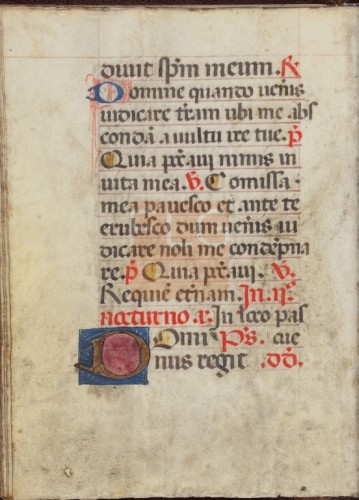 duut sp̄m meum. R̄
Domine quando uenis
iudicare t̄ram ubi me abs
condā a uultu ire tue. p̄
Quia p̄caui nimis in
uita mea. v̄. Comissa
mea pauesco et ante te
erubesco dum ueneris iu
dicare noli me condēpna
re. p̄ Quia p̄caui. v̄.
Requiē etnam. In. ij°.
nocturno. a. In loco pas
Domi Ps. cue
nus regit .dd̄.